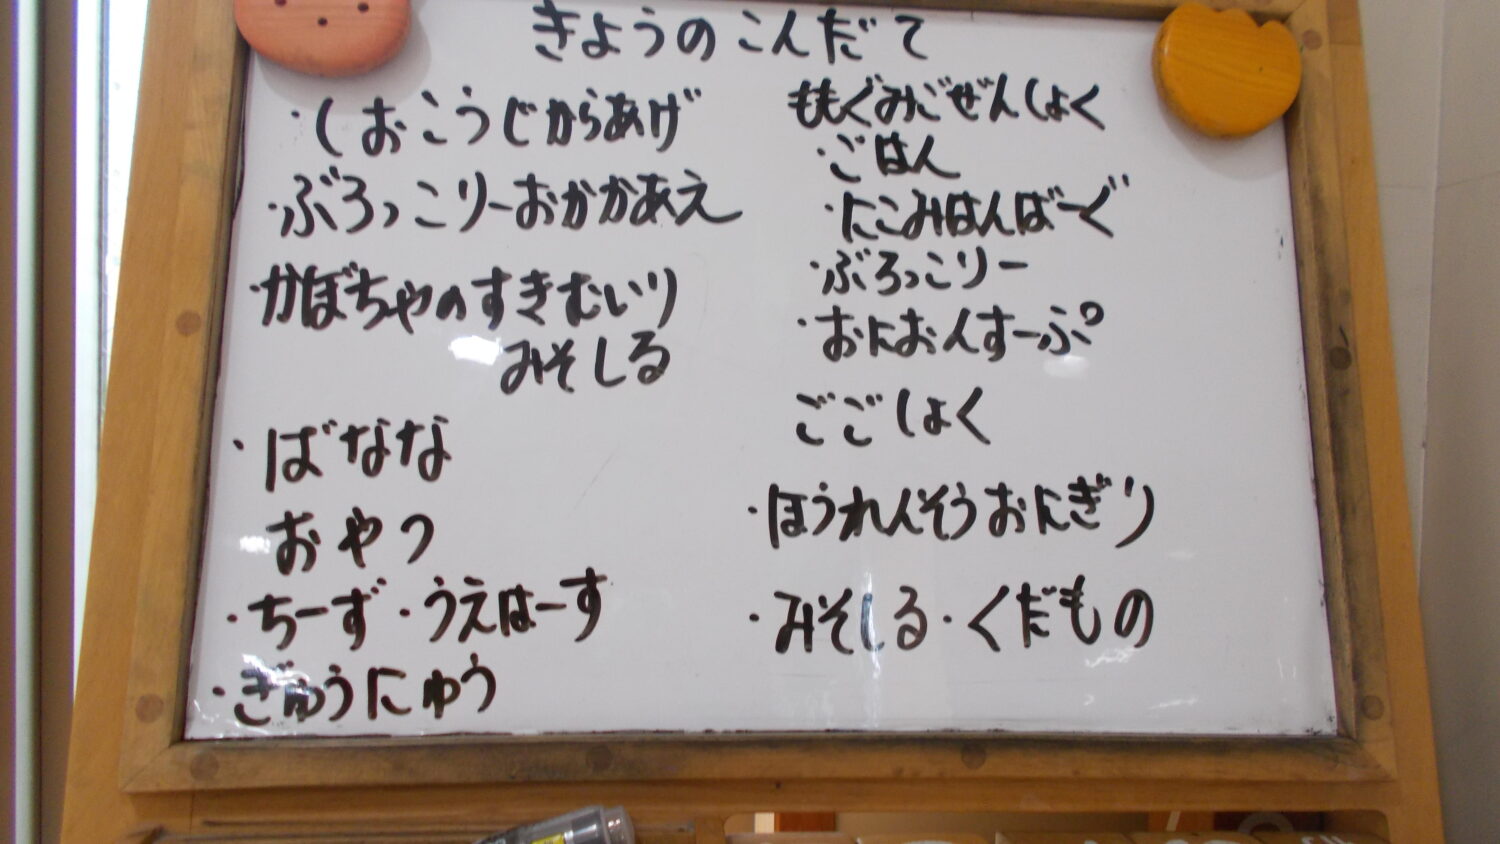 きょうのこんだて
・しおこうじからあげ
・ぶろっこりーおかかあえ
・かぼちゃのすきむいり
みそしる
・ばなな
おやつ
・ちーず・うえはーす
・ぎゅうにゅう
ももぐみごぜんしょく
・ごはん
・にこみはんばーぐ
・ぶろっこりー
・おにおんすーぷ
ごごしょく
・ほうれんそうおにぎり
・みそしる・くだもの